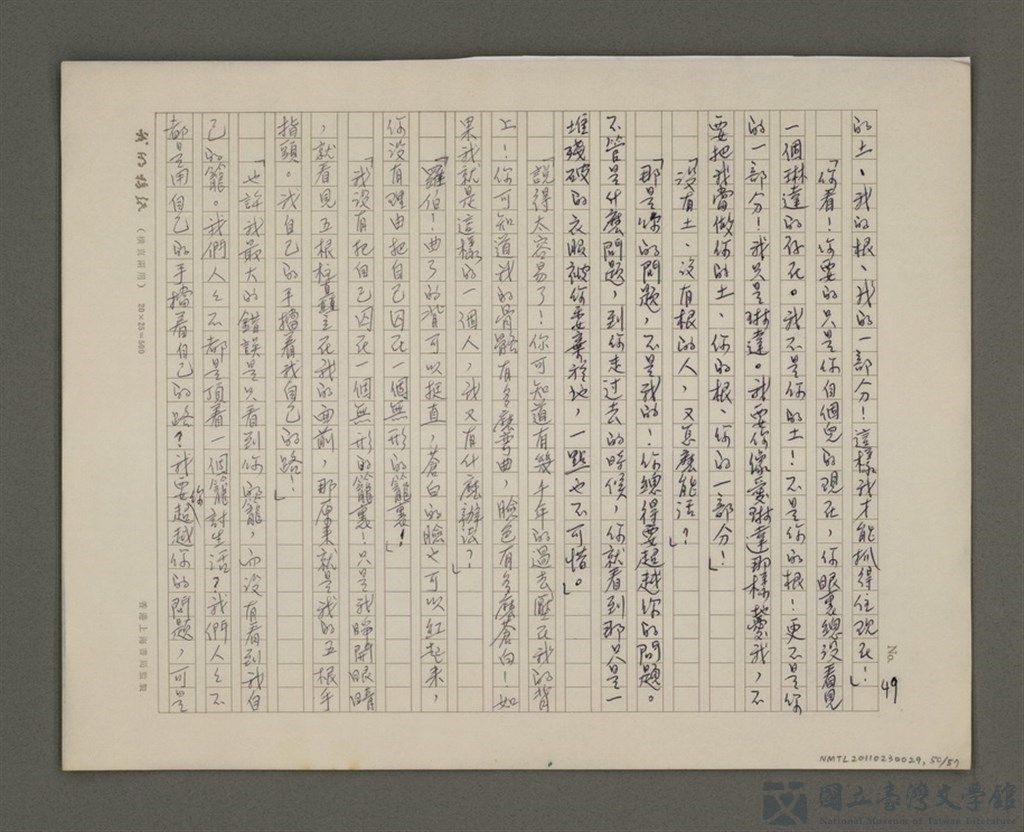 No. 49
的土、我的根、我的一部分！這樣我才能抓得住現在！」
「你看！你要的只是你自個兒的現在，你眼裏總沒看見
一個琳達的存在。我不是你的土！不是你的根！更不是你
的一部分！我只是琳達。我要你像愛琳達那樣愛我，不
要把我當做你的土、你的根、你的一部分！」
「沒有土、沒有根的人，又怎麼能活？」
「那是你的問題，不是我的！你總得要超越你的問題。
不管是什麼問題，到你走过去的時候，你就看到那只是一
堆殘破的衣服被你委棄在地，一點也不可惜。」
「說得太容易了！你可知道有幾千年的過去壓在我的背
上！你可知道我的骨骼有多麼彎曲，臉色有多麼蒼白！如
果我就是這樣的一個人，我又有什麼辦法？」
「羅伯！曲了的背可以挺直，蒼白的臉也可以紅起來，
你沒有理由把自己囚在一個無形的籠裏！」
「我沒有把自己囚在一個無形的籠裏！只是我睜開眼睛
，就看見五根柱直立在我的面前，那原來就是我的五根手
指頭。我自己的手擋着我自己的路！」
「也許我最大的錯誤是只看到你的籠，而沒有看到我自
己的籠。我們人人不都是頂着一個籠討生活？我們人人不
都是用自己的手擋着自己的路？我要你超越你的問題，可是
（橫直兩用） 20×25=500
香港上海書局監製
NMTL20110230029, 50/57
國立臺灣文學館
National Museum of Taiwan Literature